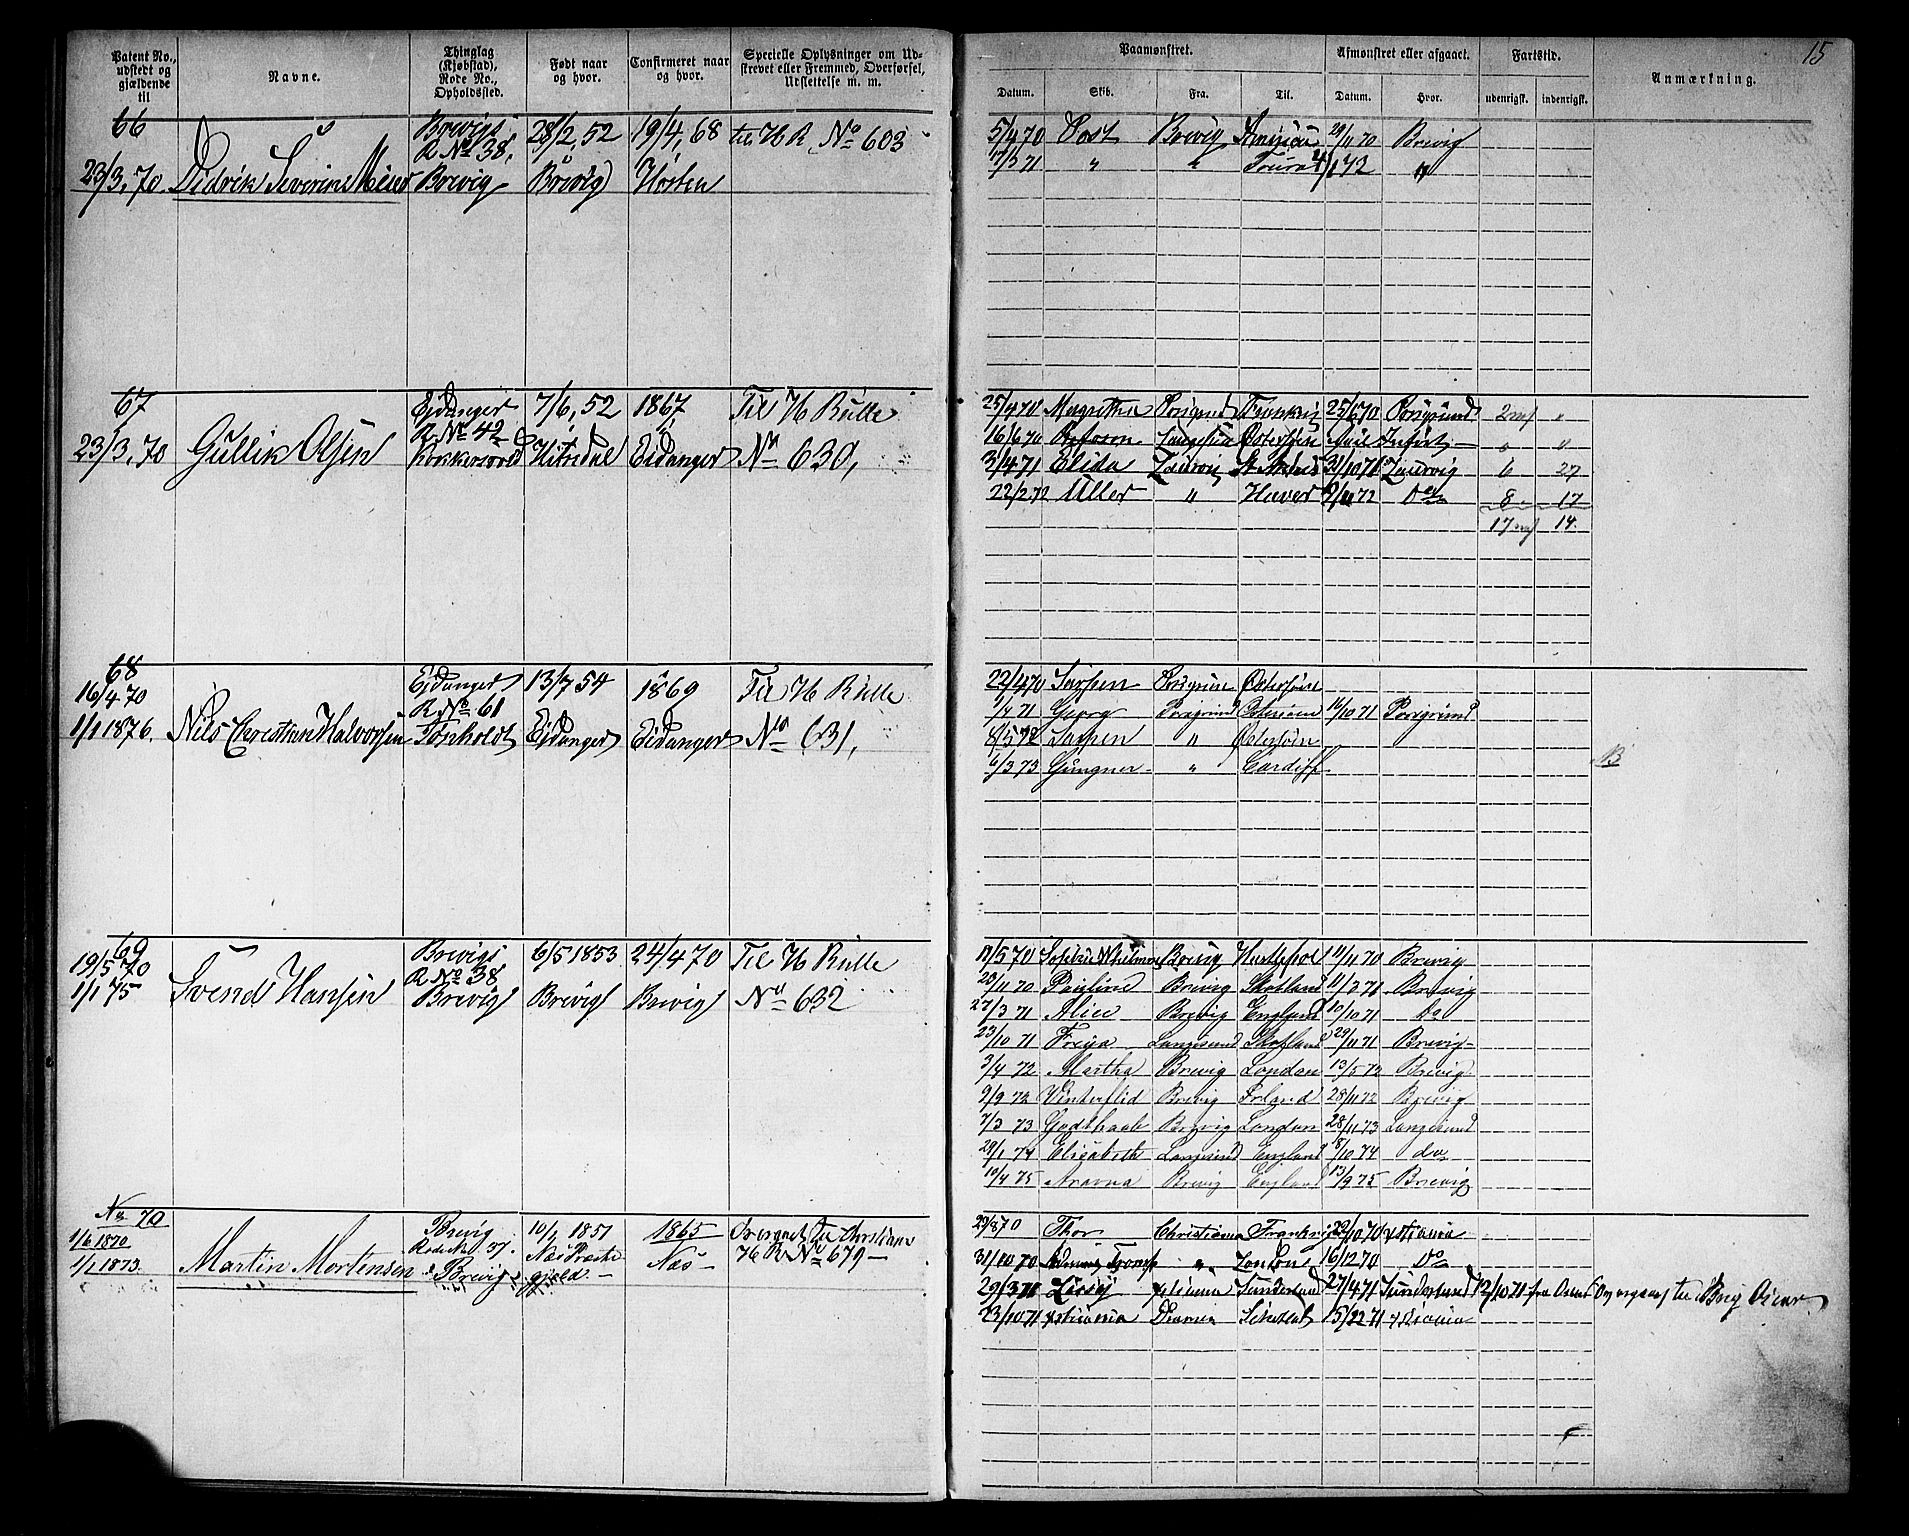 15
Patent No., udstedt og gjældende til
Navne.
Thinglag (Kjøbstad), Rode No., Opholdssted.
Født naar og hvor.
Confirmeret naar og hvor.
Specielle Oplysninger om Udskrevet eller Fremmed, Overførsel, Udslettelse m. m.
Paamønstret.
Afmønstret eller afgaaet.
Fartstid.
Anmærkning.
Datum. Skib. Fra. Til. Datum. Hvor. udenrigsk. indenrigsk.
66 Brevigs 28/2, 52 19/4, 68 til H R, No 603
R No 38,
23/3, 70 Didrik Severin Brevig Brevig
5/4 70 Post Brevig 29/11 70 Brevig
7/3 71 " "
67 Ejdanger 7/6, 52 1867 Til H Rulle
R No 42
23/3, 70 Gullik Olsen Hitredal Eidanger No 630,
25/4 70 Magrethe Porsgrund 25/6 70 Porsgrund 2 "
16/6 70 Langesund Østersøen " "
3/4 71 Elida Laurvig 31/10 71 Laurvig 6 27
22/2 72 Uller " Havre 9/11 72 Do 8 17
17 14.
68 Ejdanger 13/7 54 1869 Til H Rulle
16/4 70 R No 61
1/1 1876. Nils Christian Halvorsen Tønholdt Ejdanger Eidanger No 631,
22/4 70 Sarpen Østersøen
1/4 71 Georg Porsgrund Østersøen 16/10 71 Porsgrund
8/5 72 Sarpen " Østersøen
6/3 73 Gungner " Cardiff
NB
69 Brevigs 6/5 1853 24/4 70 Til H Rulle
19/5 70 R No 38
1/1 75 Svend Hansen Brevig Brevig Brevig No 632
19/5 70 Brevig Hartlepol 11/11 70 Brevig
23/11 70 Pauline Brevig Skotland 11/3 71 Brevig
27/3 71 Alice Brevig England 10/10 71 Do
23/10 71 Freya Langesund Skotland 29/11 71 Brevig
3/4 72 Martha Brevig London 13/5 72 Brevig
9/9 72 Vinterflid Brevig Irland 28/11 72 Brevig
7/3 73 Godthaab Brevig London 28/11 73 Langesund
29/1 74 Elisabeth Langesund England 8/10 74 do
10/4 75 Brevig England 13/9 75 Brevig
No 70 Brevig 10/1 1851 1865 Overgaaet til Christiania
1/6 1870 Rode No 37. Næs Præste Næs H R No 679
1/1 1873. Martin Mortensen Brevig gjeld
29/8 70 Thor Christiania Frankrig 22/10 70 Xstiania
31/10 70 " London 16/12 70 Do
29/3 71 Xstiania Sunderland 27/4 71 Sunderland 12/10 71 fra til Brig Oscar
23/10 71 Xstiania 15/12 71 Xstiania